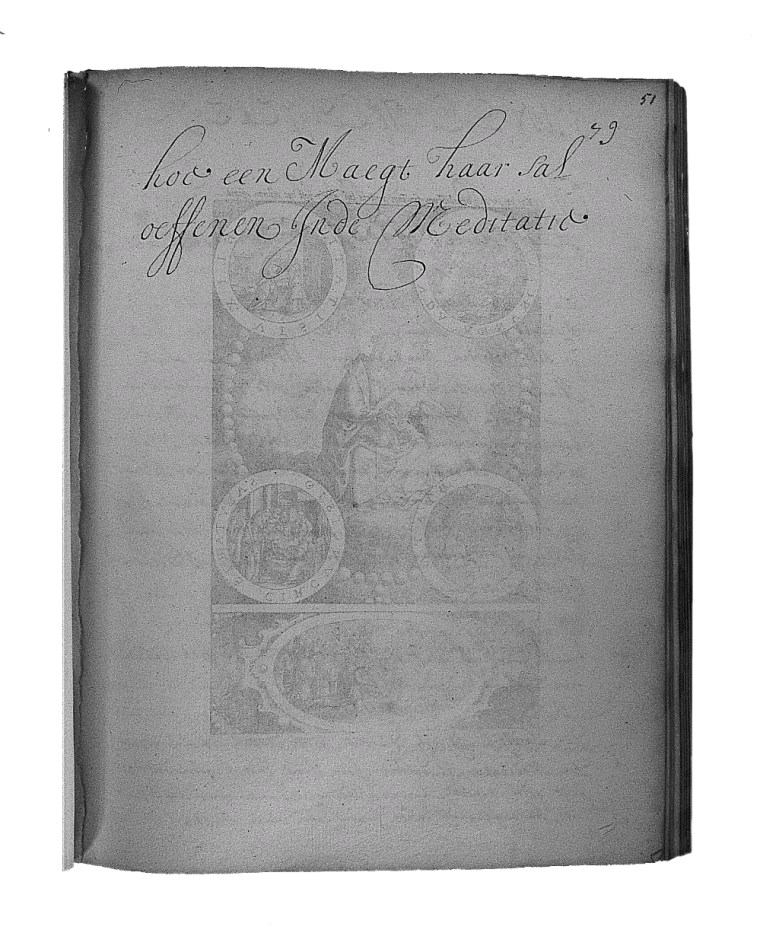 51
79
hoe een Maegt haar sal
oeffenen Inde Meditatie